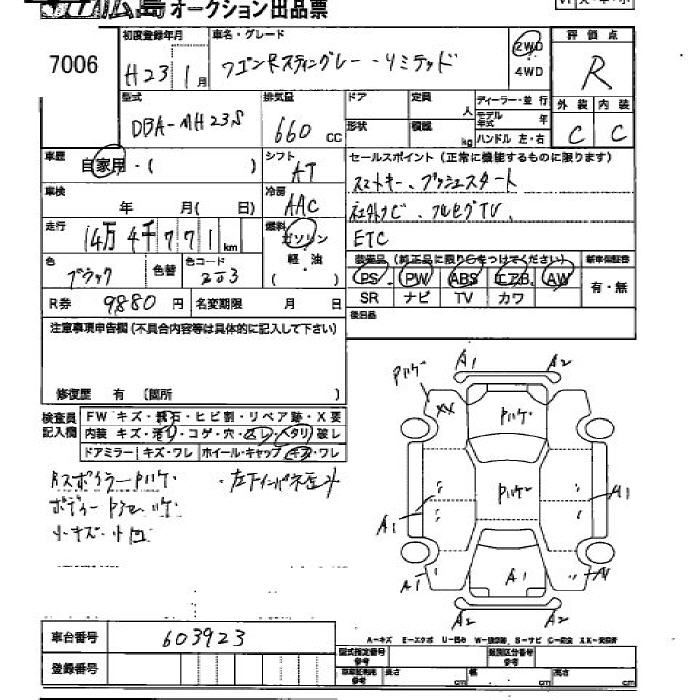 広島オークション出品票
7006
初度登録年月
H23 1月
車名・グレード
ワゴンRスティングレー・リミテッド
2WD
4WD
評価点
R
型式
DBA-MH23S
排気量
660 CC
ドア
定員
人
形状
積載
kg
ディーラー・並行
モデル年式
年
ハンドル 左・右
外装
内装
C
C
車歴
自家用・( )
シフト
AT
セールスポイント (正常に機能するものに限ります)
スマートキー、プッシュスタート
社外ナビ、フルセグTV、
ETC
車検
年 月( 日)
冷房
AAC
走行
14万4千771km
燃料
ガソリン
軽・油
( )
色
ブラック
色替
色コード
ZJ3
装備品 (純正品に限り○をつけてください)
新車保証書
PS PW ABS エアB AW
有・無
SR ナビ TV カワ
R券
9880円
名変期限 月 日
後日品
注意事項申告欄(不具合内容等は具体的に記入して下さい)
修復歴 有 〔箇所 〕
検査員記入欄
FW キズ・飛石・ヒビ割・リペア跡・X要
内装 キズ・汚れ・コゲ・穴・スレ・ヘタリ・破レ
ドアミラー キズ・ワレ ホイール・キャップ キズ・ワレ
RスポイラーPハゲ
ボディー
小キズ・小凹
A1
A2
Pハゲ
XX
Pハゲ
Pハゲ
A1
A1
A1
A1
A1
A2
A2
車台番号
603923
A-キズ E-エクボ U-凹み W-補修跡 S-サビ C-腐食 XX-交換済
登録番号
型式指定番号
参考
類別区分番号
参考
長さ
cm
幅
cm
高さ
cm